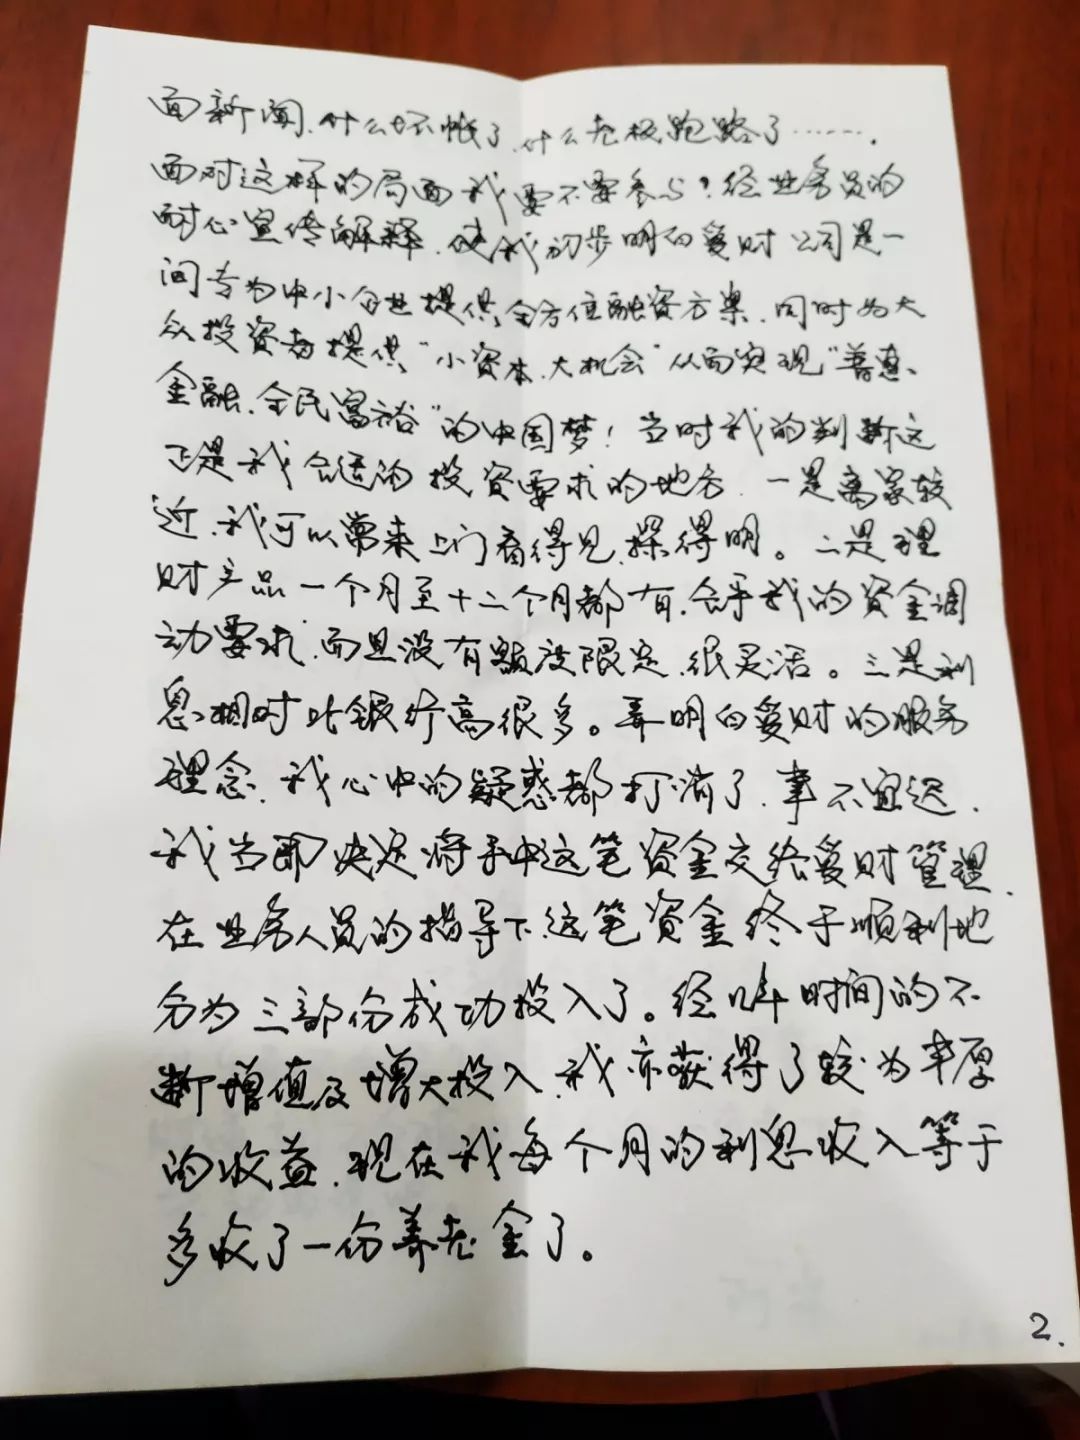 面新闻、什么坏帐了、什么老板跑路了……。
面对这样的局面我要不要参与？经业务员的
耐心宣传解释、使我初步明白爱财公司是一
间专为中小企业提供全方位融资方案、同时为大
众投资者提供“小资本、大机会”从而实现“普惠、
金融、全民富裕”的中国梦！当时我的判断这
正是我合适的投资要求的地方、一是离家较
近、我可以常来上门看得见、探得明。二是理
财产品一个月至十二个月都有、合乎我的资金调
动要求、而且没有额度限定、很灵活。三是利
息相对比银行高很多。弄明白爱财的服务
理念、我心中的疑惑都打消了、事不宜迟、
我当即决定将手中这笔资金交给爱财管理、
在业务人员的指导下、这笔资金终于顺利地
分为三部份成功投入了。经几年时间的不
断增值及增大投入、我亦获得了较为丰厚
的收益、现在我每个月的利息收入等于
多收了一份养老金了。
2.